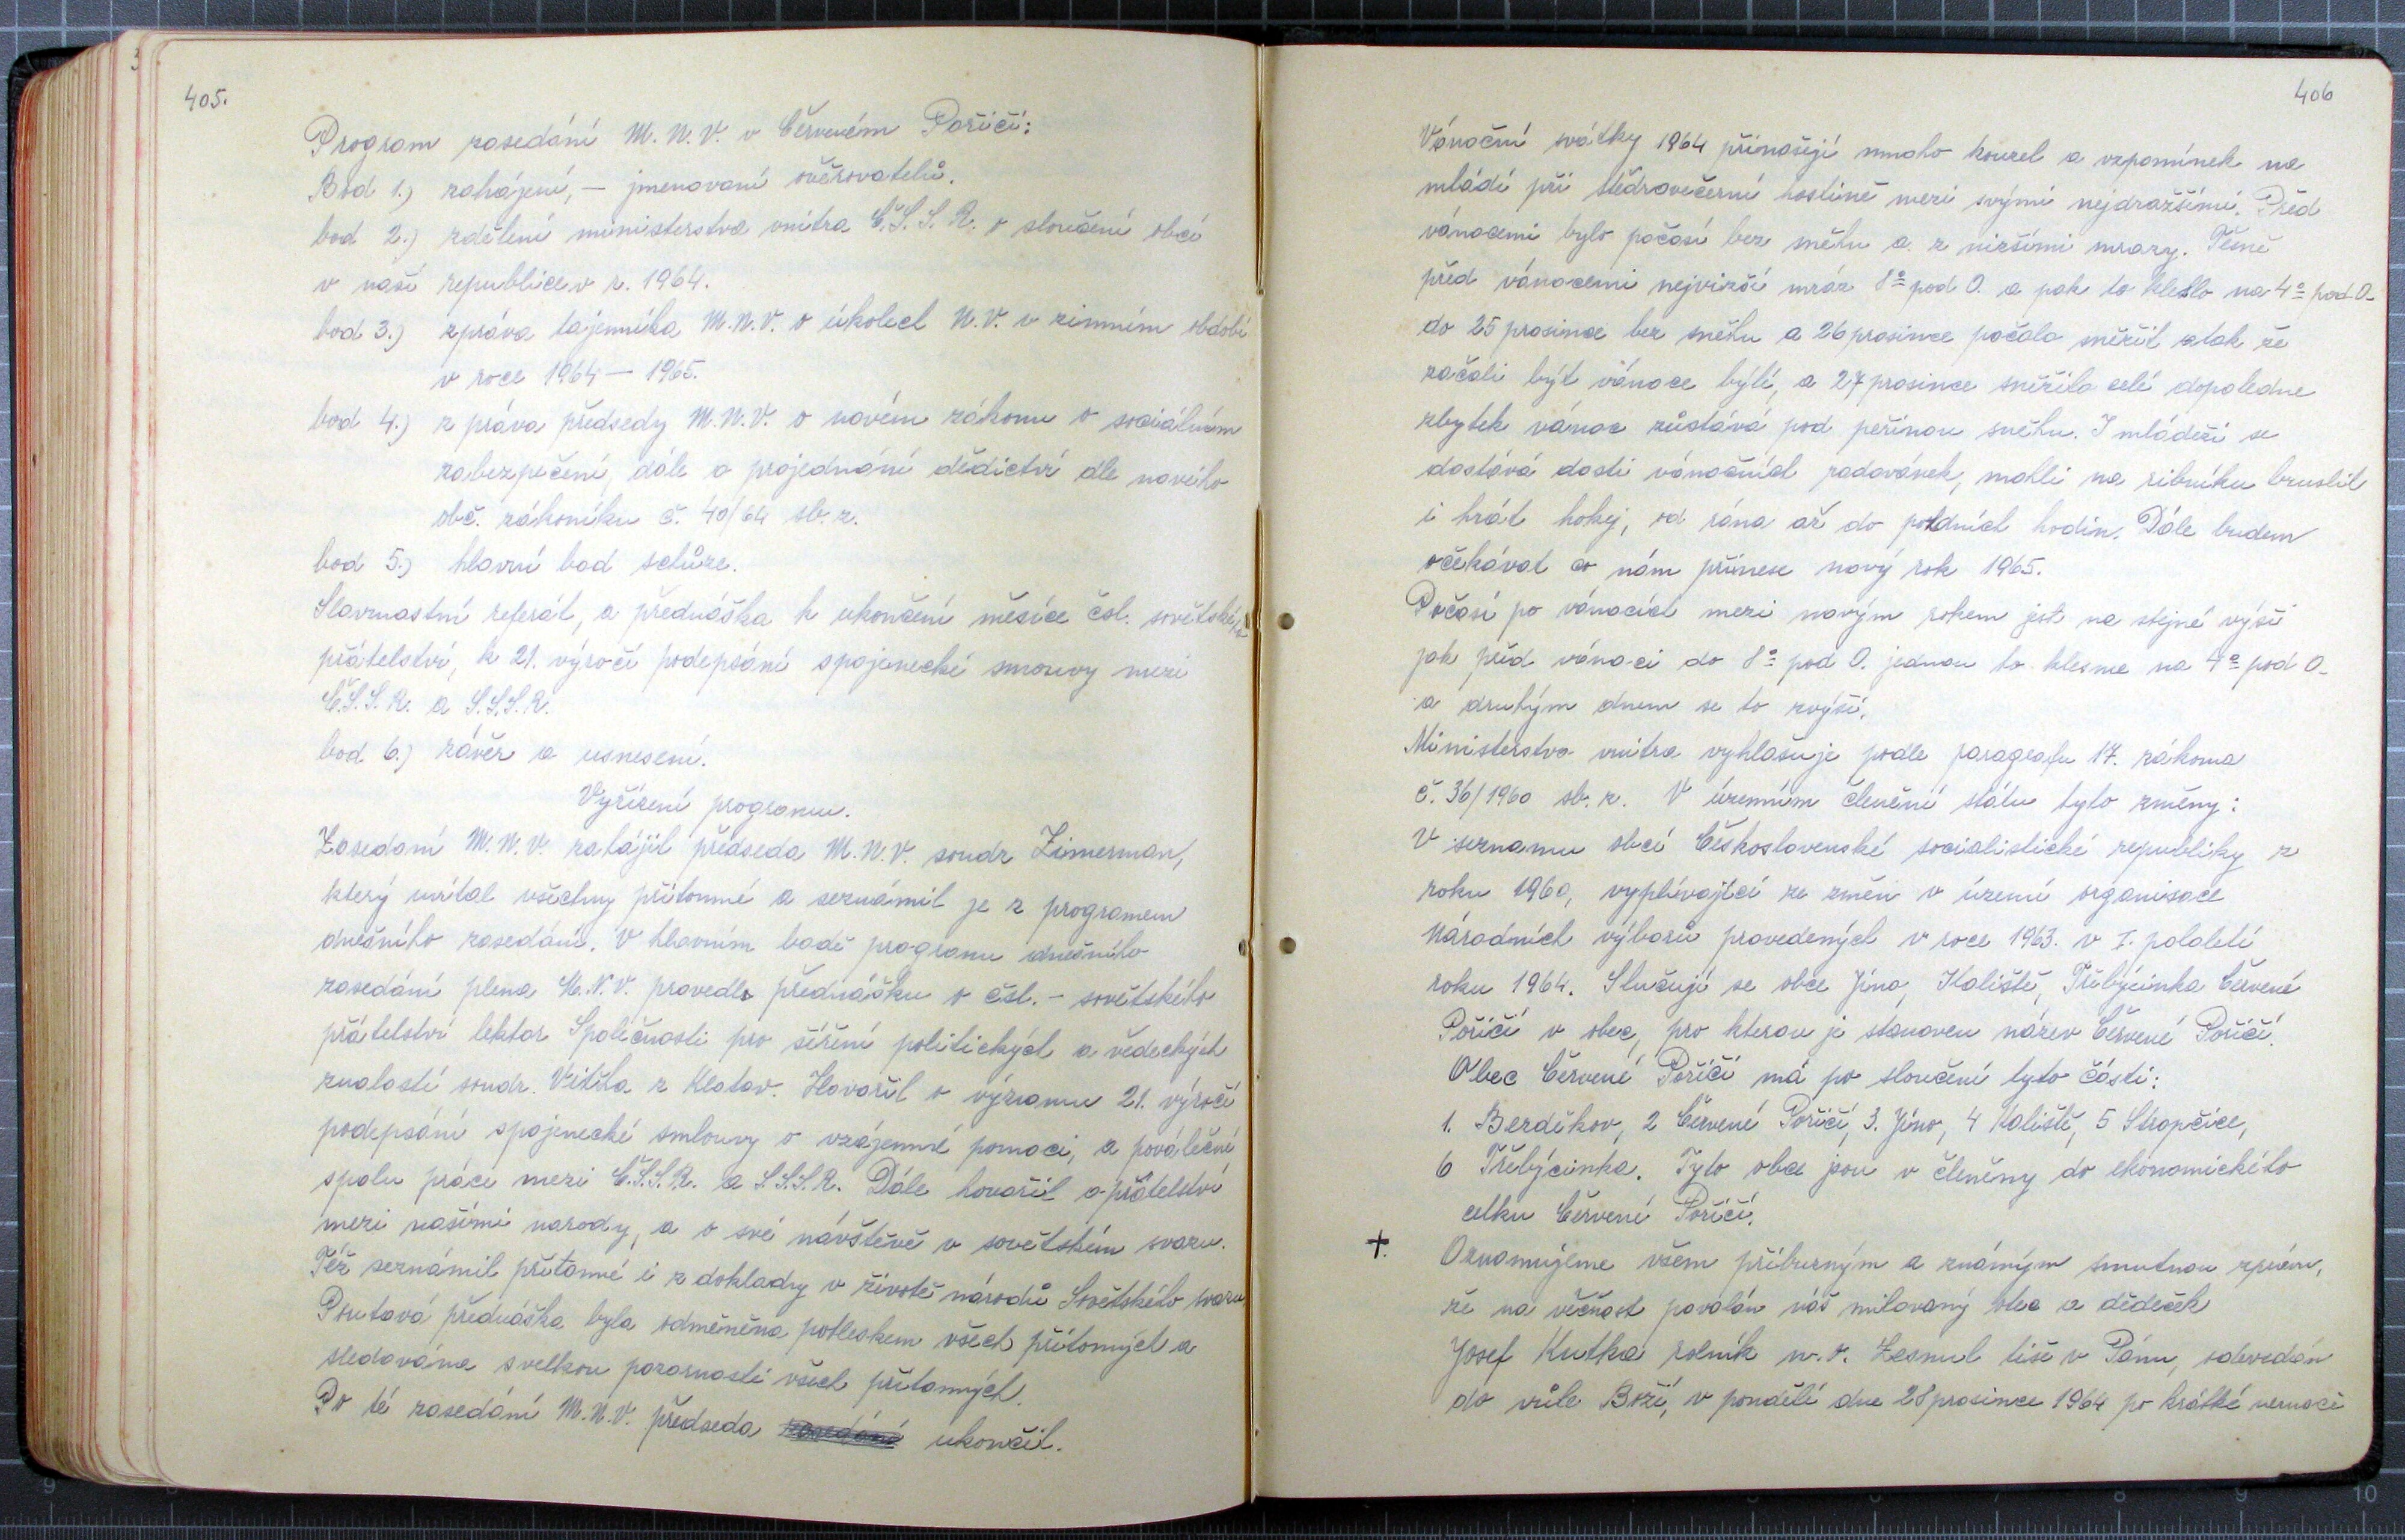 405.
Program zasedání M.N.V. v Červeném Poříčí:
Bod 1.) zahájení, — jmenovaní ověřovatelů.
bod 2.) zdělení ministerstva vnitra Č.S.S.R. o sloučení obcí
v naší republice v r. 1964.
bod 3.) zpráva tajemníka M.N.V. o úkolech N.V. v zimním období
v roce 1964 — 1965.
bod 4.) z práva předsedy M.N.V. o novém zákonu o sociálním
zabezpečení, dále o projednání dědictví dle nového
obč. zákoníku č. 40/64 sb. z.
bod 5.) hlavní bod schůze.
Slavnostní referát, a přednáška k ukončení měsíce čsl. sovětského
přátelství, k 21. výročí podepsání spojenecké smouvy mezi
Č.S.S.R. a S.S.S.R.
bod 6.) závěr a usnesení.
Vyřízení programu.
Zasedaní M.N.V. zahájil předseda M.N.V. soudr Zimerman,
který uvítal všechny přítomné a seznámil je z programem
dnešního zasedání. V hlavním bodě programu dnešního
zasedání plena M.N.V. provedl přednášku o čsl. - sovětského
přátelství lektor Společnosti pro šíření politických a vědeckých
znalostí soudr. z Klatov. Hovořil o významu 21. výročí
podepsání spojenecké smlouvy o vzájemné pomoci, a poválečné
spolu práce mezi Č.S.S.R. a S.S.S.R. Dále hovořil o přátelství
mezi našími narody, a o své návštěvě v sovětském svazu.
Též seznámil přítomné i z doklady v životě národů Sovětského svazu
Poutavá přednáška byla odměněna potleskem všech přítomných a
sledována s velkou pozorností všech přítomných.
Po té zasedání M.N.V. předseda zasedání ukončil.
406
Vánoční svátky 1964 přinašejí mnoho kouzel a vzpomínek na
mládí při štědrovečerní hostině mezi svými nejdražšími. Před
vánocemi bylo počasí bez sněhu a z nižšími mrazy. Těsně
před vánocemi nejvižší mráz 8° pod 0. a pak to kleslo na 4° pod 0.
do 25 prosince bez sněhu a 26 prosince počalo sněžit a tak že
začali být vánoce býlé, a 27 prosince sněžilo celé dopoledne
zbytek vánoc zůstává pod peřinou sněhu. I mládeži se
dostává dosti vánočních radovánek, mohli na ribníku bruslit
i hrát hokej, od rána až do poldních hodin. Dále budem
očekávat co nám přinese nový rok 1965.
Počasí po vánocích mezi novým rokem jest na stejné výši
jak před vánoci do 8° pod 0. jednou to klesne na 4° pod 0.
a druhým dnem se to zvýší.
Ministerstvo vnitra vyhlašuje podle paragrafu 17. zákona
č. 36/1960 sb. z. V územním členění státu tyto změny:
V seznamu obcí Československé socialistické republiky z
roku 1960, vyplívající ze změn v území organisace
Národních výborů provedených v roce 1963. v I. pololetí
roku 1964. Slučují se obce Jíno, Kaliště, Třebýcinka Červené
Poříčí v obec, pro kterou je stanoven název Červené Poříčí.
Obec Červené Poříčí má po sloučení tyto části:
1. Berdékov, 2 Červené Poříčí, 3. Jíno, 4 Kaliště, 5 Stropčice,
6 Třebýcinka. Tyto obce jsou v členěny do ekonomického
celku Červené Poříčí.
+. Oznamujeme všem příbuzným a známým smutnou zprávu,
že na věčnost povolán náš milovaný otec a dědeček
Josef Kutka rolník n.o. Zesnul tiše v Pánu, odevzdán
do vůle Boží, v pondělí dne 28 prosince 1964 po krátké nemoci